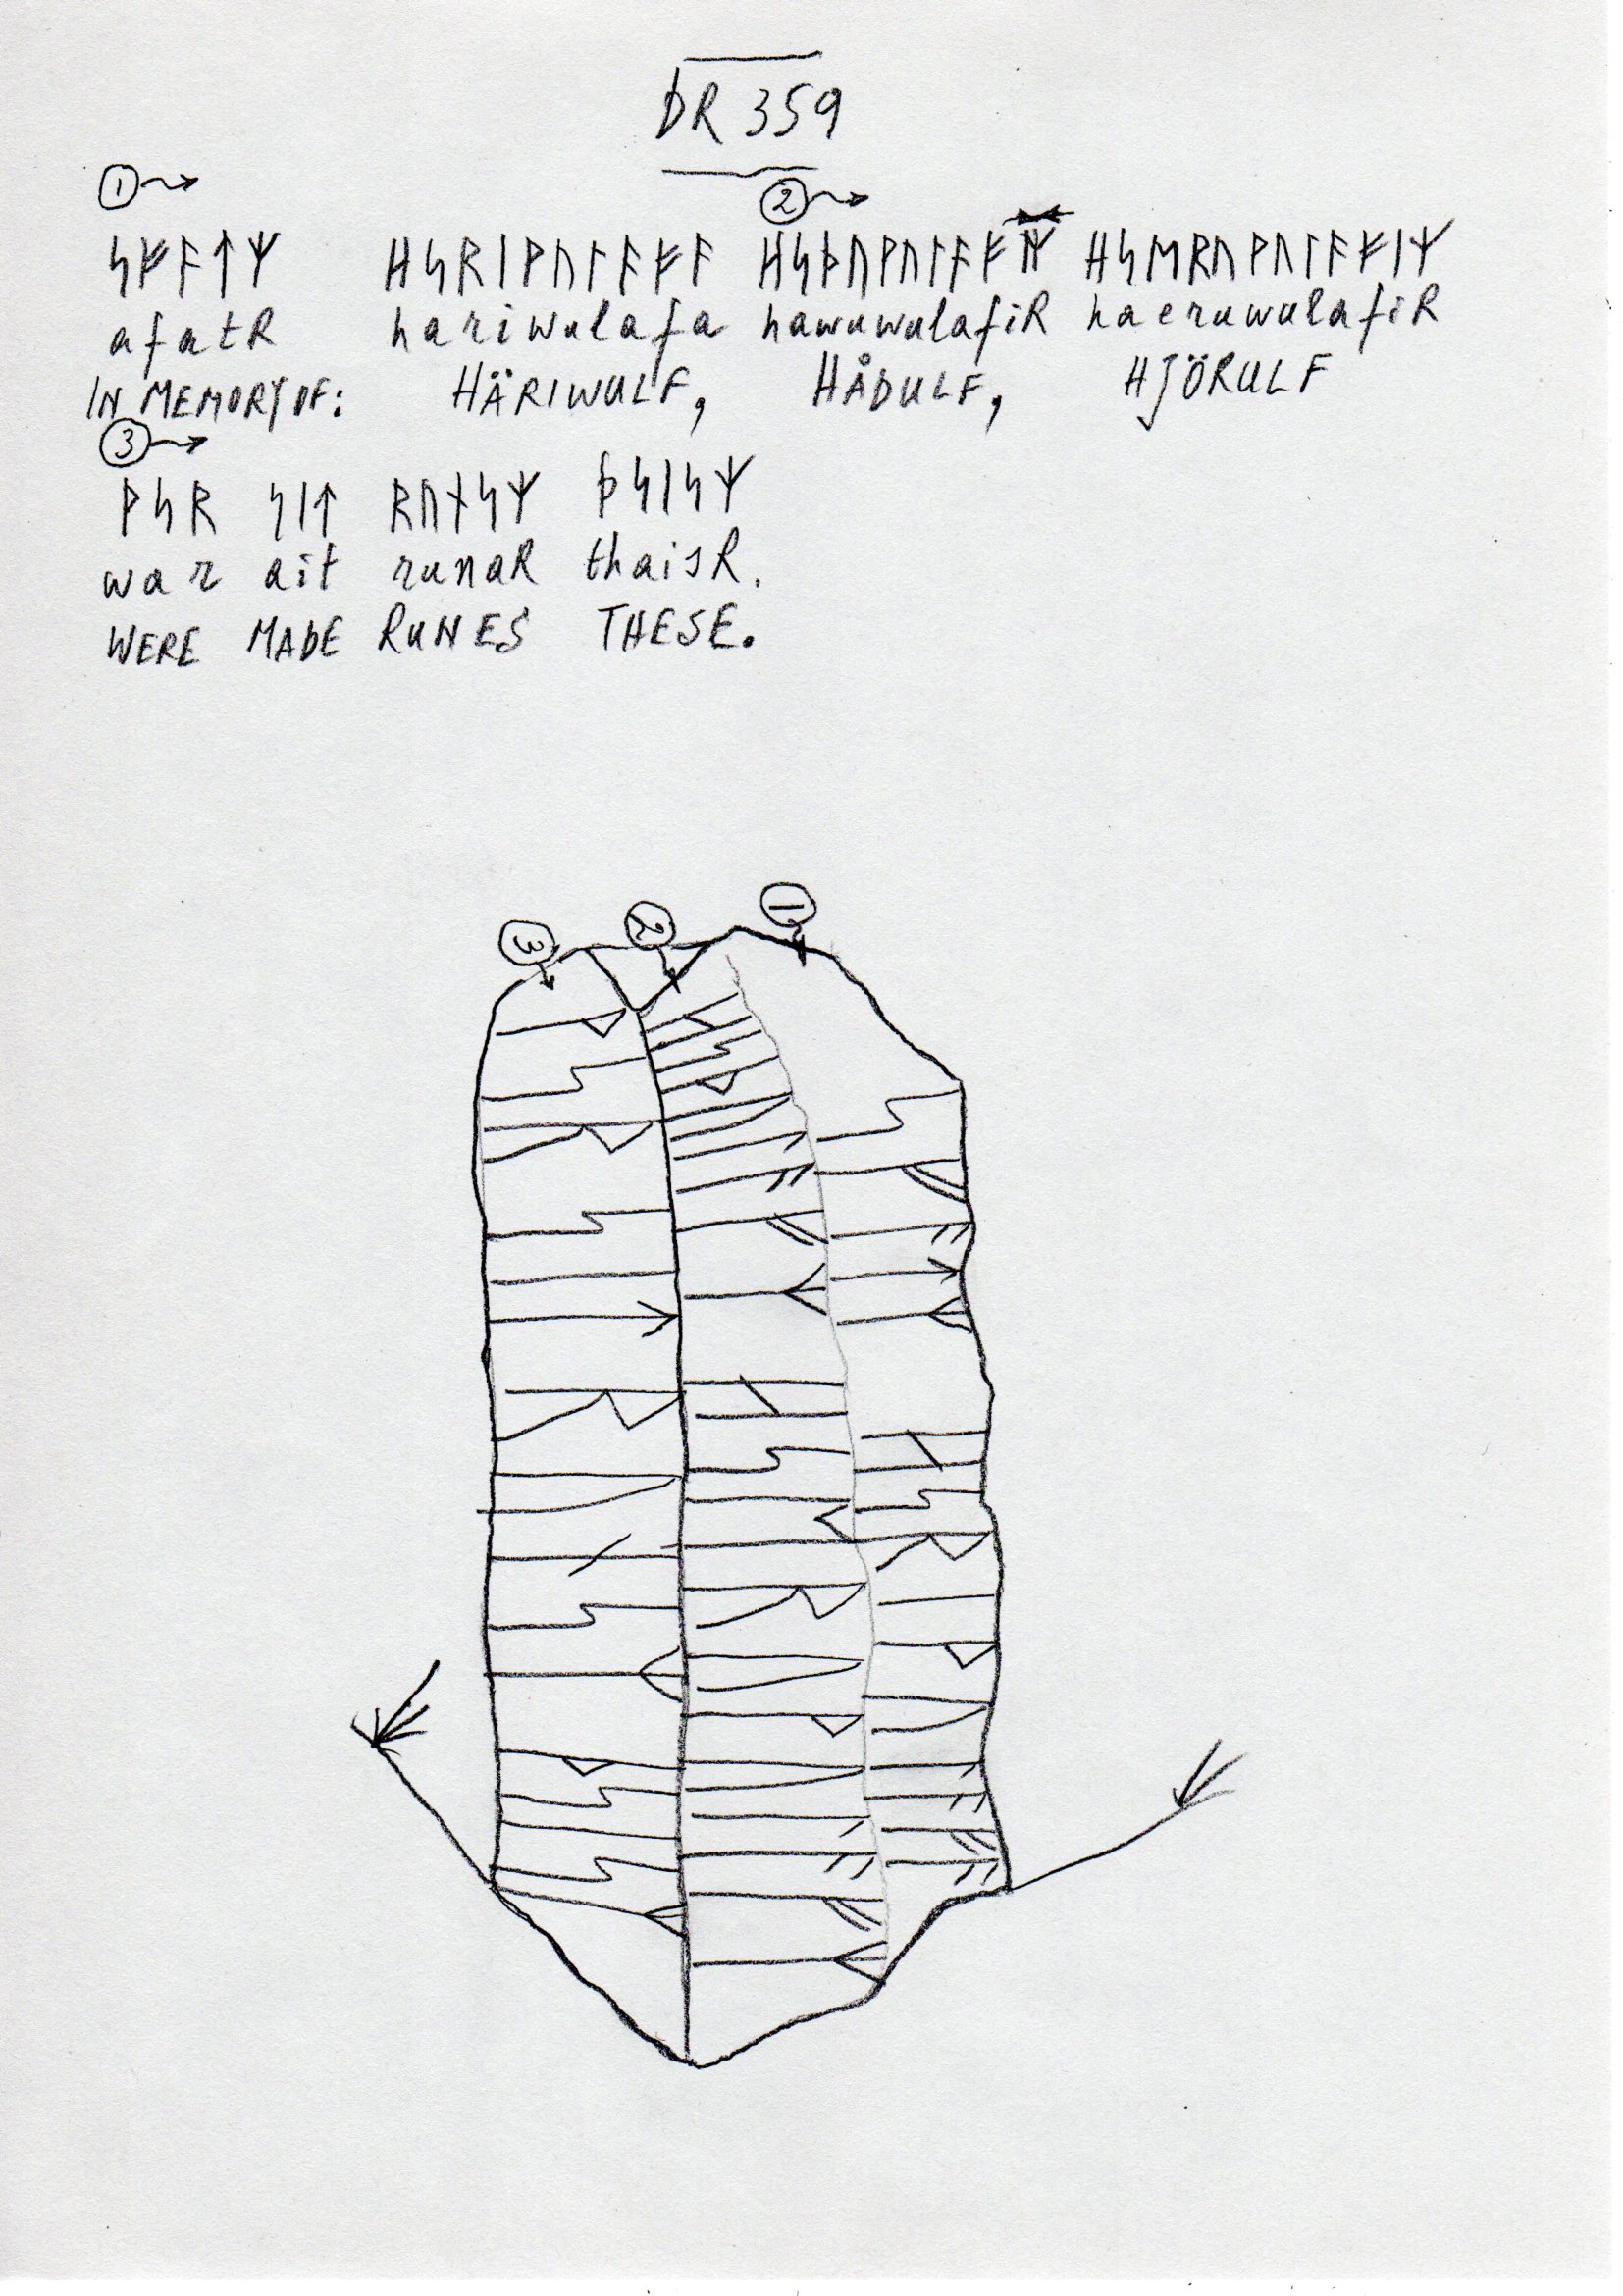 DR 359
① ②
ᛋᚠᚨᛏᛉ ᚺᛋᚱᛁᚹᚢᛚᚨᚠᚨ ᚺᛋᚦᚢᚹᚢᛚᚨᚠ ᚺᛋᛖᚱᚢᚹᚢᛚᚨᚠᛁᛉ
afatR hariwulafa hawuwulafiR haeruwulafiR
IN MEMORY OF: HÄRIWULF, HÅÐULF, HJÖRULF
③
ᚹᛋᚱ ᛋᛁᛏ ᚱᚢᚾᛋᛉ ᚦᛋᛁᛋᛉ
war ait runaR thaisR.
WERE MADE RUNES THESE.
③ ② ①